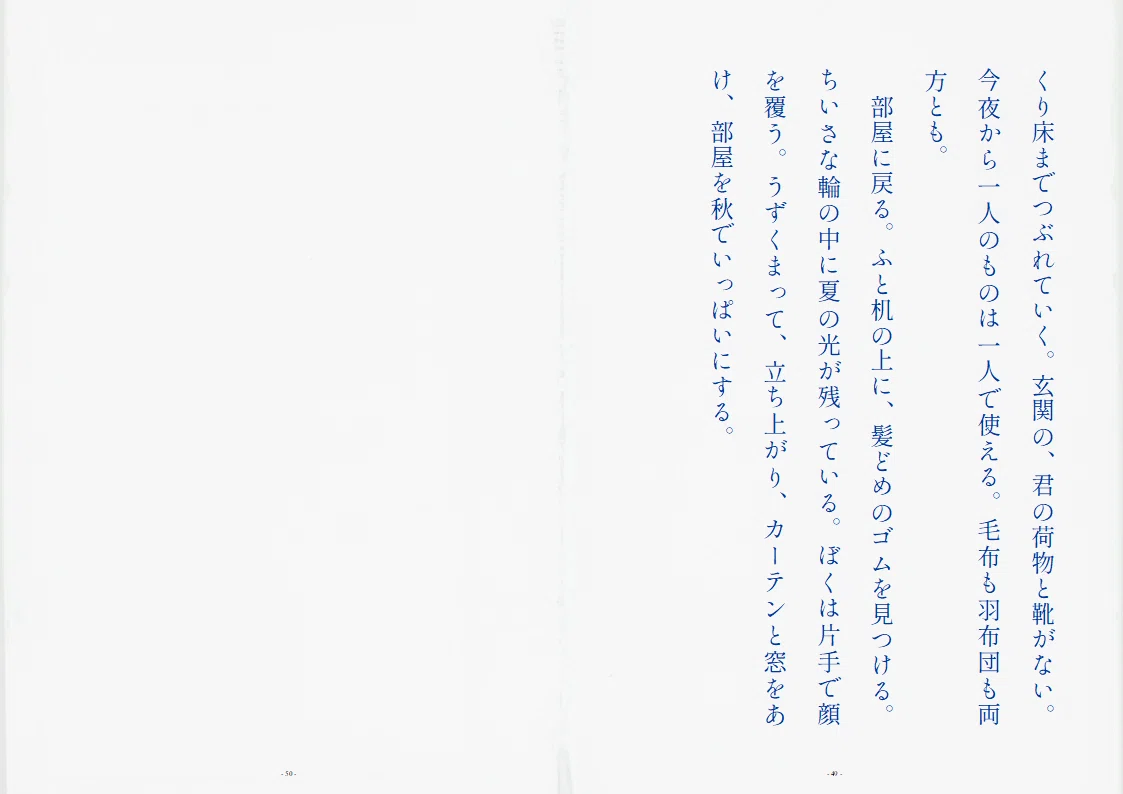 くり床までつぶれていく。玄関の、君の荷物と靴がない。
今夜から一人のものは一人で使える。毛布も羽布団も両
方とも。
　部屋に戻る。ふと机の上に、髪どめのゴムを見つける。
ちいさな輪の中に夏の光が残っている。ぼくは片手で顔
を覆う。うずくまって、立ち上がり、カーテンと窓をあ
け、部屋を秋でいっぱいにする。
- 49 -
- 50 -